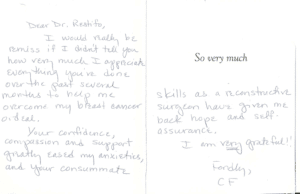 Dear Dr. Restifo,
I would really be
remiss if I didn't tell you
how very much I appreciate
everything you've done
over the past several
months to help me
overcome my breast cancer
ordeal.
Your confidence,
compassion and support
greatly eased my anxieties,
and your consummate
So very much
skills as a reconstructive
surgeon have given me
back hope and self-
assurance.
I am very grateful!
Fondly,
CF